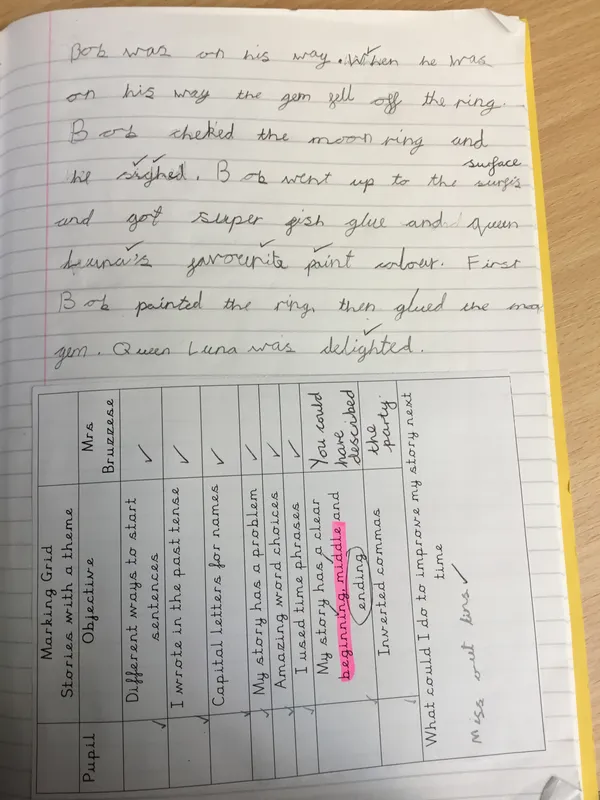 Bob was on his way. When he was
on his way the gem fell off the ring.
Bob cheked the moon ring and
surface
he sighed. Bob went up to the surfis
and got super fish glue and Queen
favourite paint colour. First
Bob painted the ring, then glued the
gem. Queen Luna was delighted.
Marking Grid
Stories with a theme
Pupil Objective Mrs Bruzzese
Different ways to start sentences
I wrote in the past tense
Capital letters for names
My story has a problem
Amazing word choices
I used time phrases
My story has a clear beginning, middle and ending You could have described the party.
Inverted commas
What could I do to improve my story next time
Miss out lins